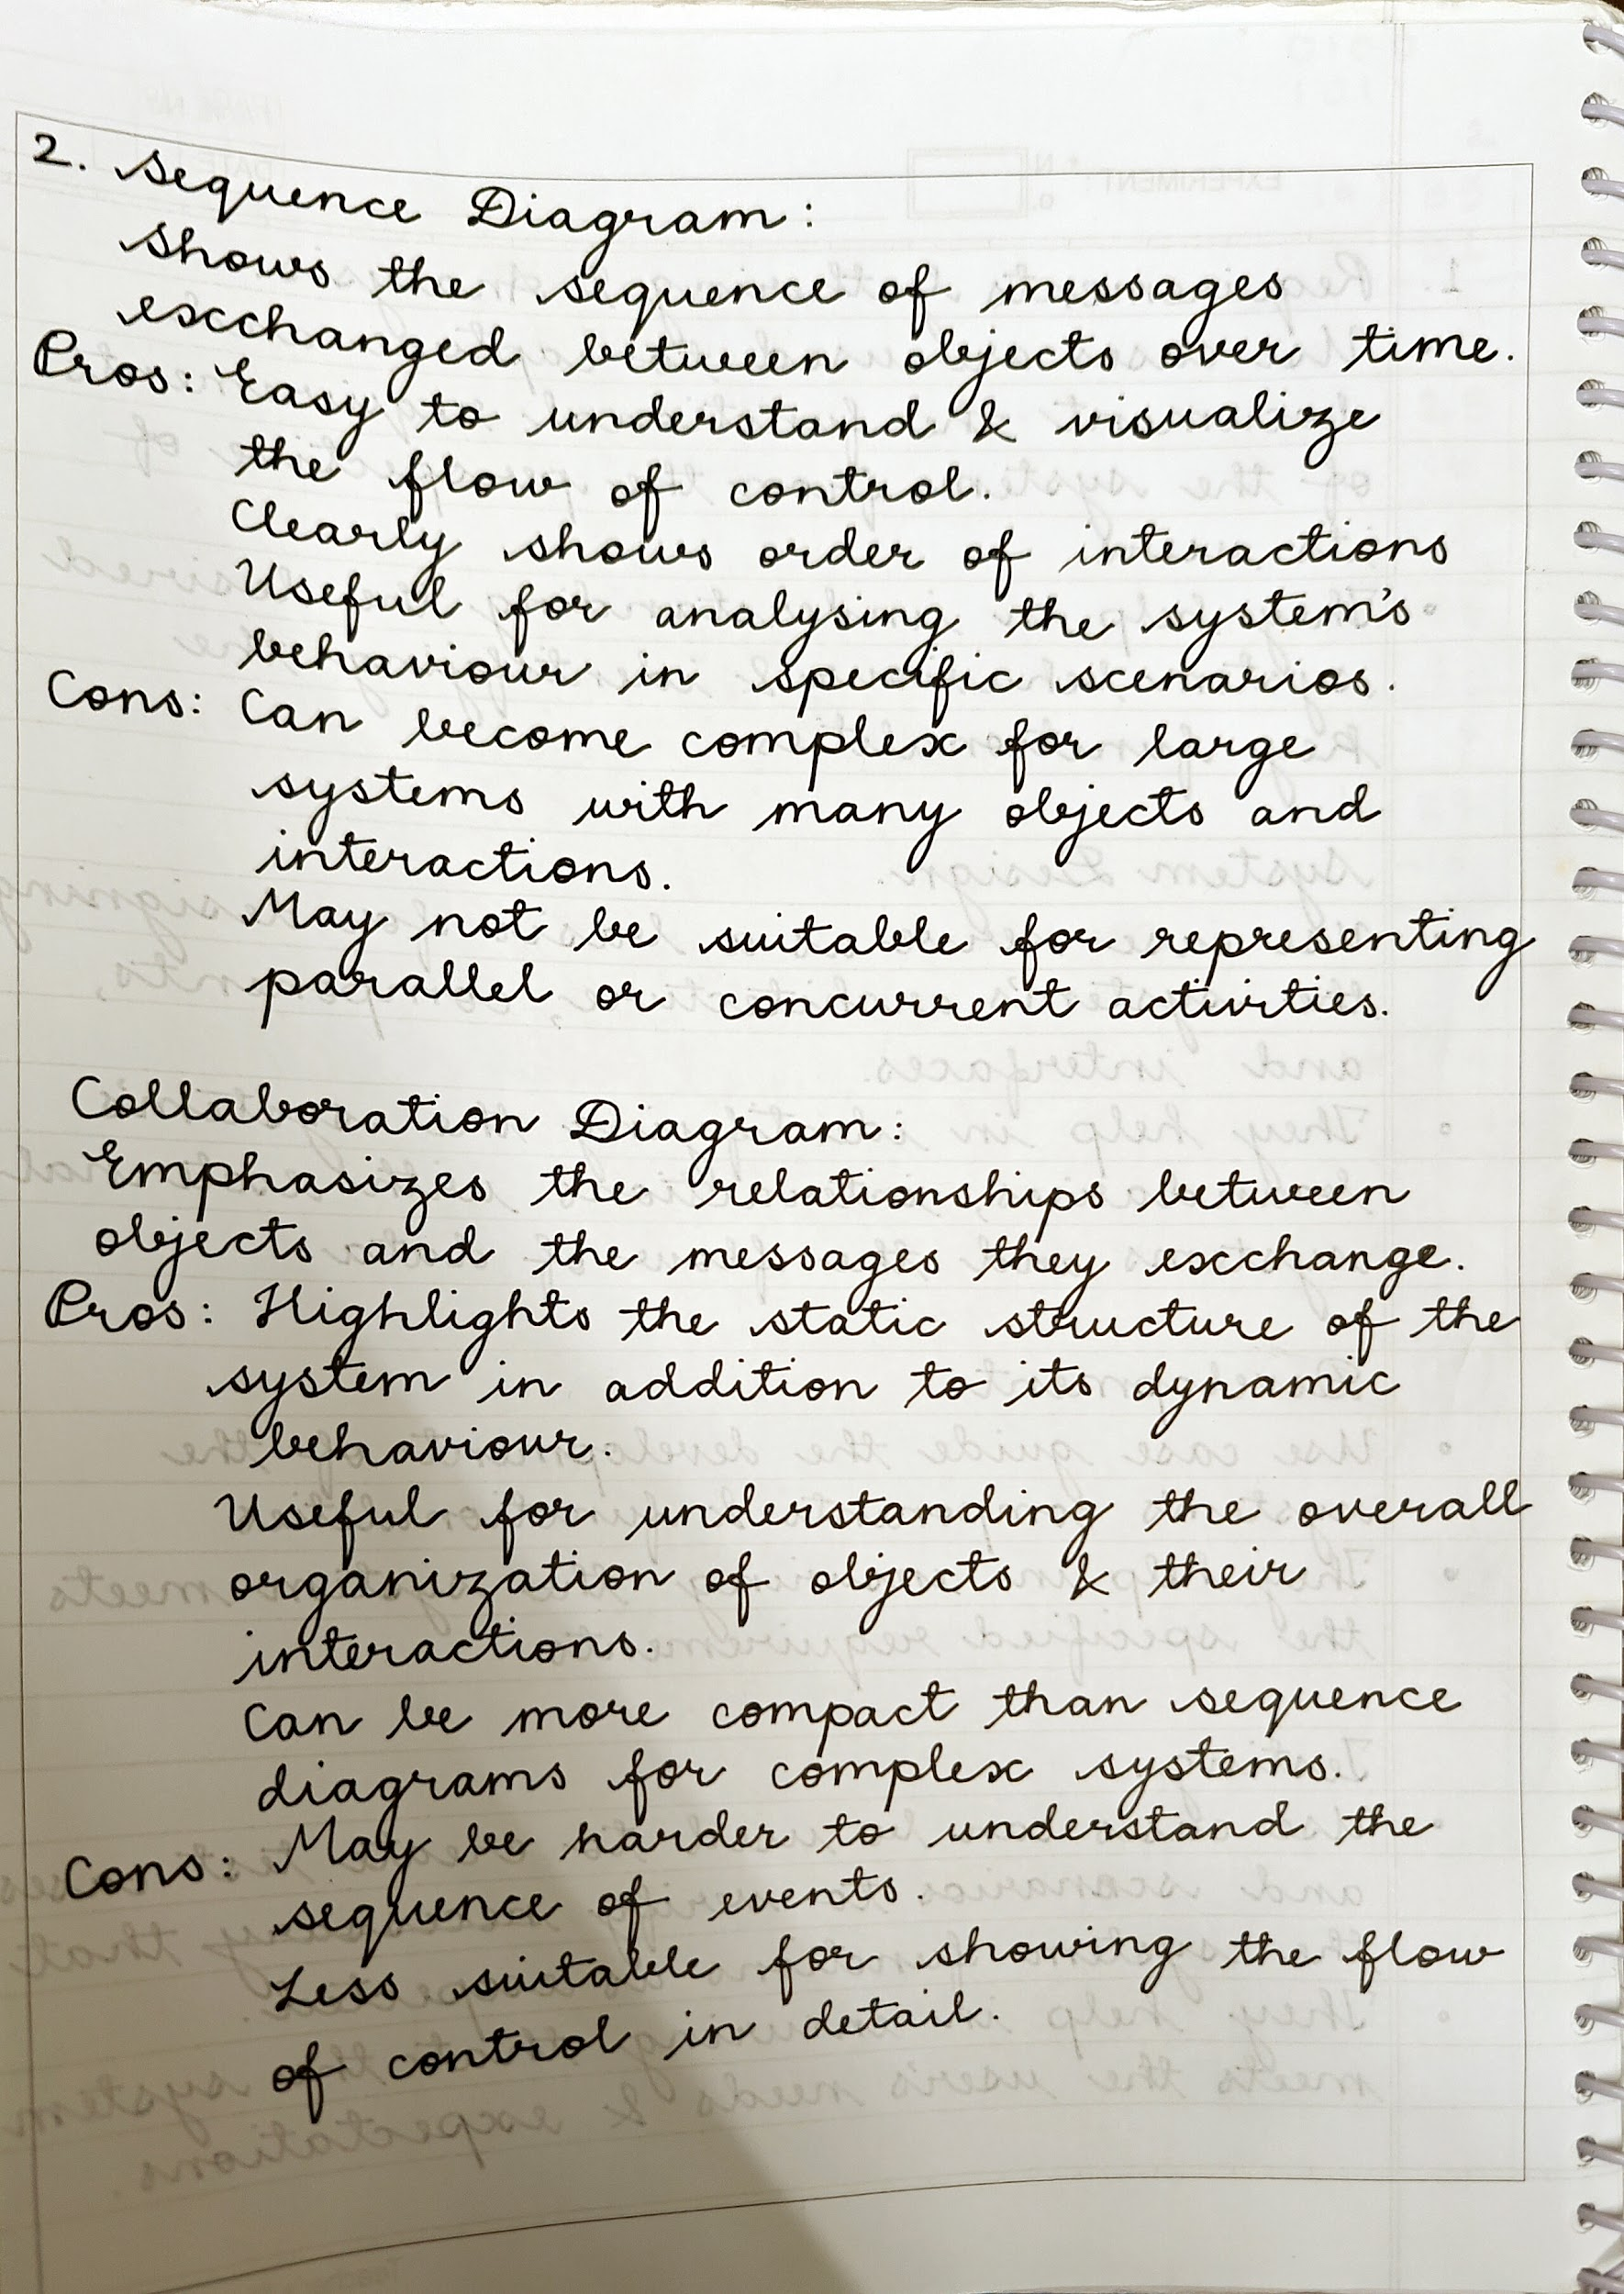 2. Sequence Diagram:
Shows the sequence of messages
exchanged between objects over time.
Pros: Easy to understand & visualize
the flow of control.
Clearly shows order of interactions
Useful for analysing the system's
behaviour in specific scenarios.
Cons: Can become complex for large
systems with many objects and
interactions.
May not be suitable for representing
parallel or concurrent activities.
Collaboration Diagram:
Emphasizes the relationships between
objects and the messages they exchange.
Pros: Highlights the static structure of the
system in addition to its dynamic
behaviour.
Useful for understanding the overall
organization of objects & their
interactions.
Can be more compact than sequence
diagrams for complex systems.
Cons: May be harder to understand the
sequence of events.
Less suitable for showing the flow
of control in detail.